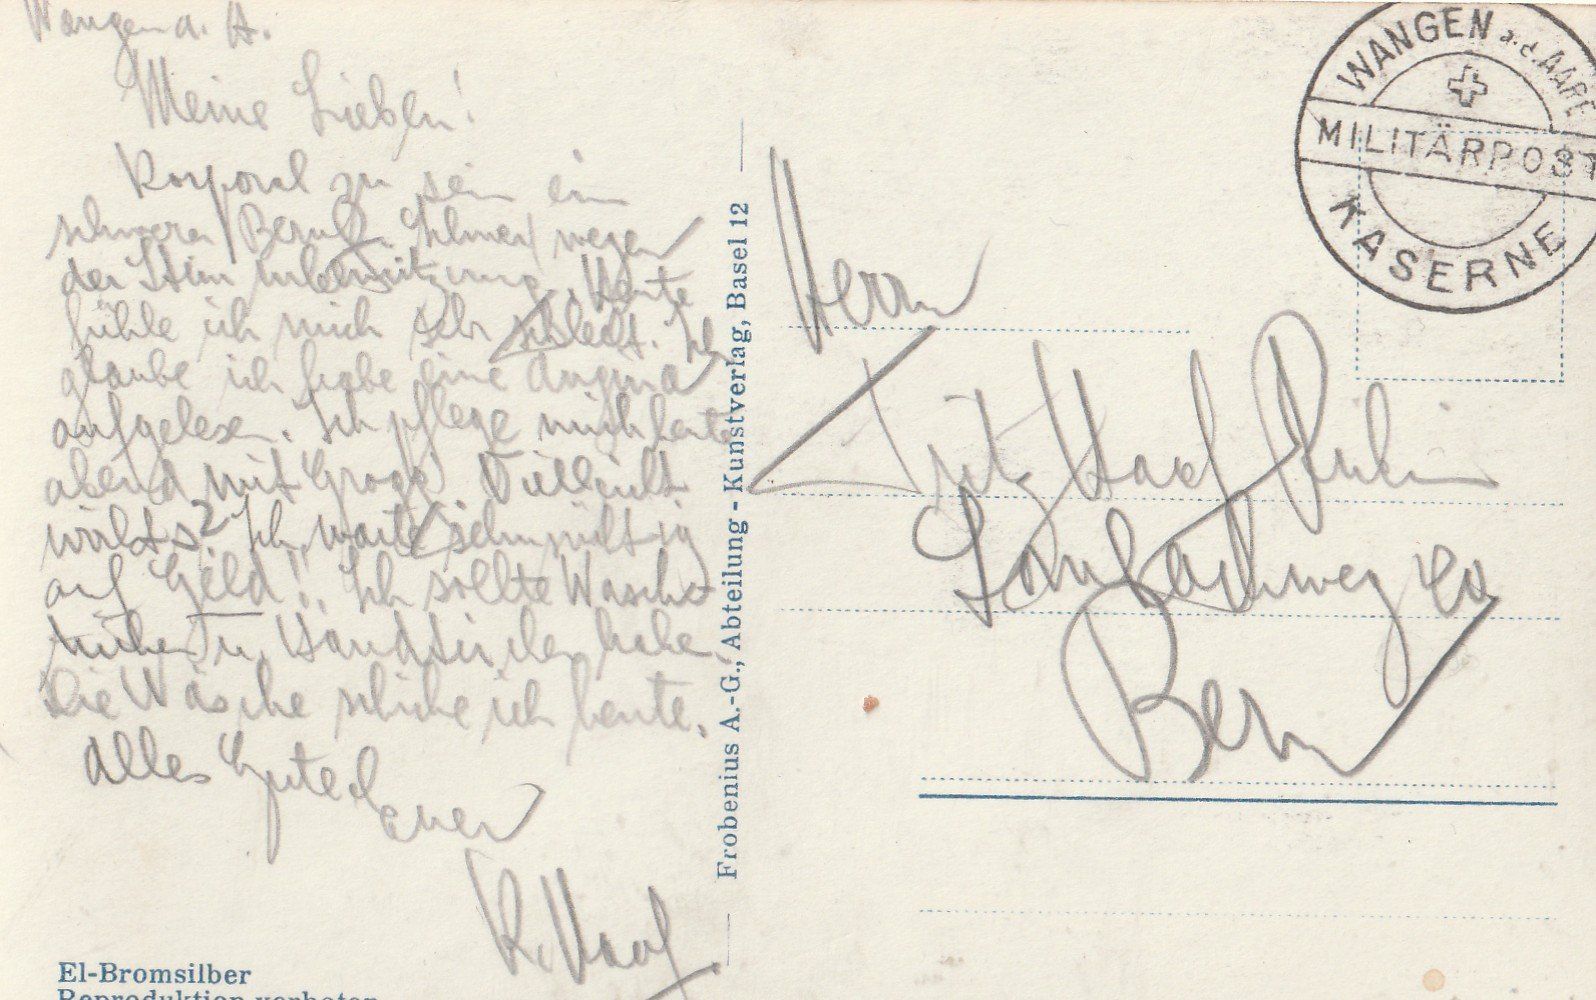 Wangen a. A.
Meine Lieben!
Korporal zu sein ein
schwerer Beruf. Schwer wegen
der
fühle ich mich sehr schlecht. Ich
glaube ich habe eine Angina
aufgelesen. Ich pflege mich heute
abend mit Grogg. Vielleicht
Ich warte sehnsüchtig
auf Geld! Ich sollte Wasch-
u. haben.
Die Wäsche schicke ich heute.
Alles Gute
Euer
K. Haaf.
El-Bromsilber
Reproduktion verboten
Frobenius A.-G., Abteilung - Kunstverlag, Basel 12
WANGEN a.d. AARE
MILITÄRPOST
KASERNE
Herrn
Fritz Haaf
Bern